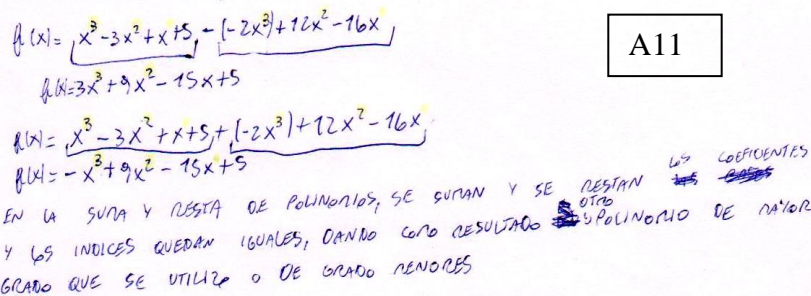 f(x)= x³-3x²+x+5, - (-2x³)+12x²-16x
A11
f(x)=3x³+9x²-15x+5
f(x)= x³-3x²+x+5,+(-2x³)+12x²-16x
f(x)= -x³+9x²-15x+5
EN LA SUMA Y RESTA DE POLINOMIOS, SE SUMAN Y SE RESTAN LOS COEFICIENTES
Y LOS INDICES QUEDAN IGUALES, DANDO COMO RESULTADO OTRO POLINOMIO DE MAYOR
GRADO QUE SE UTILIZO O DE GRADO MENORES